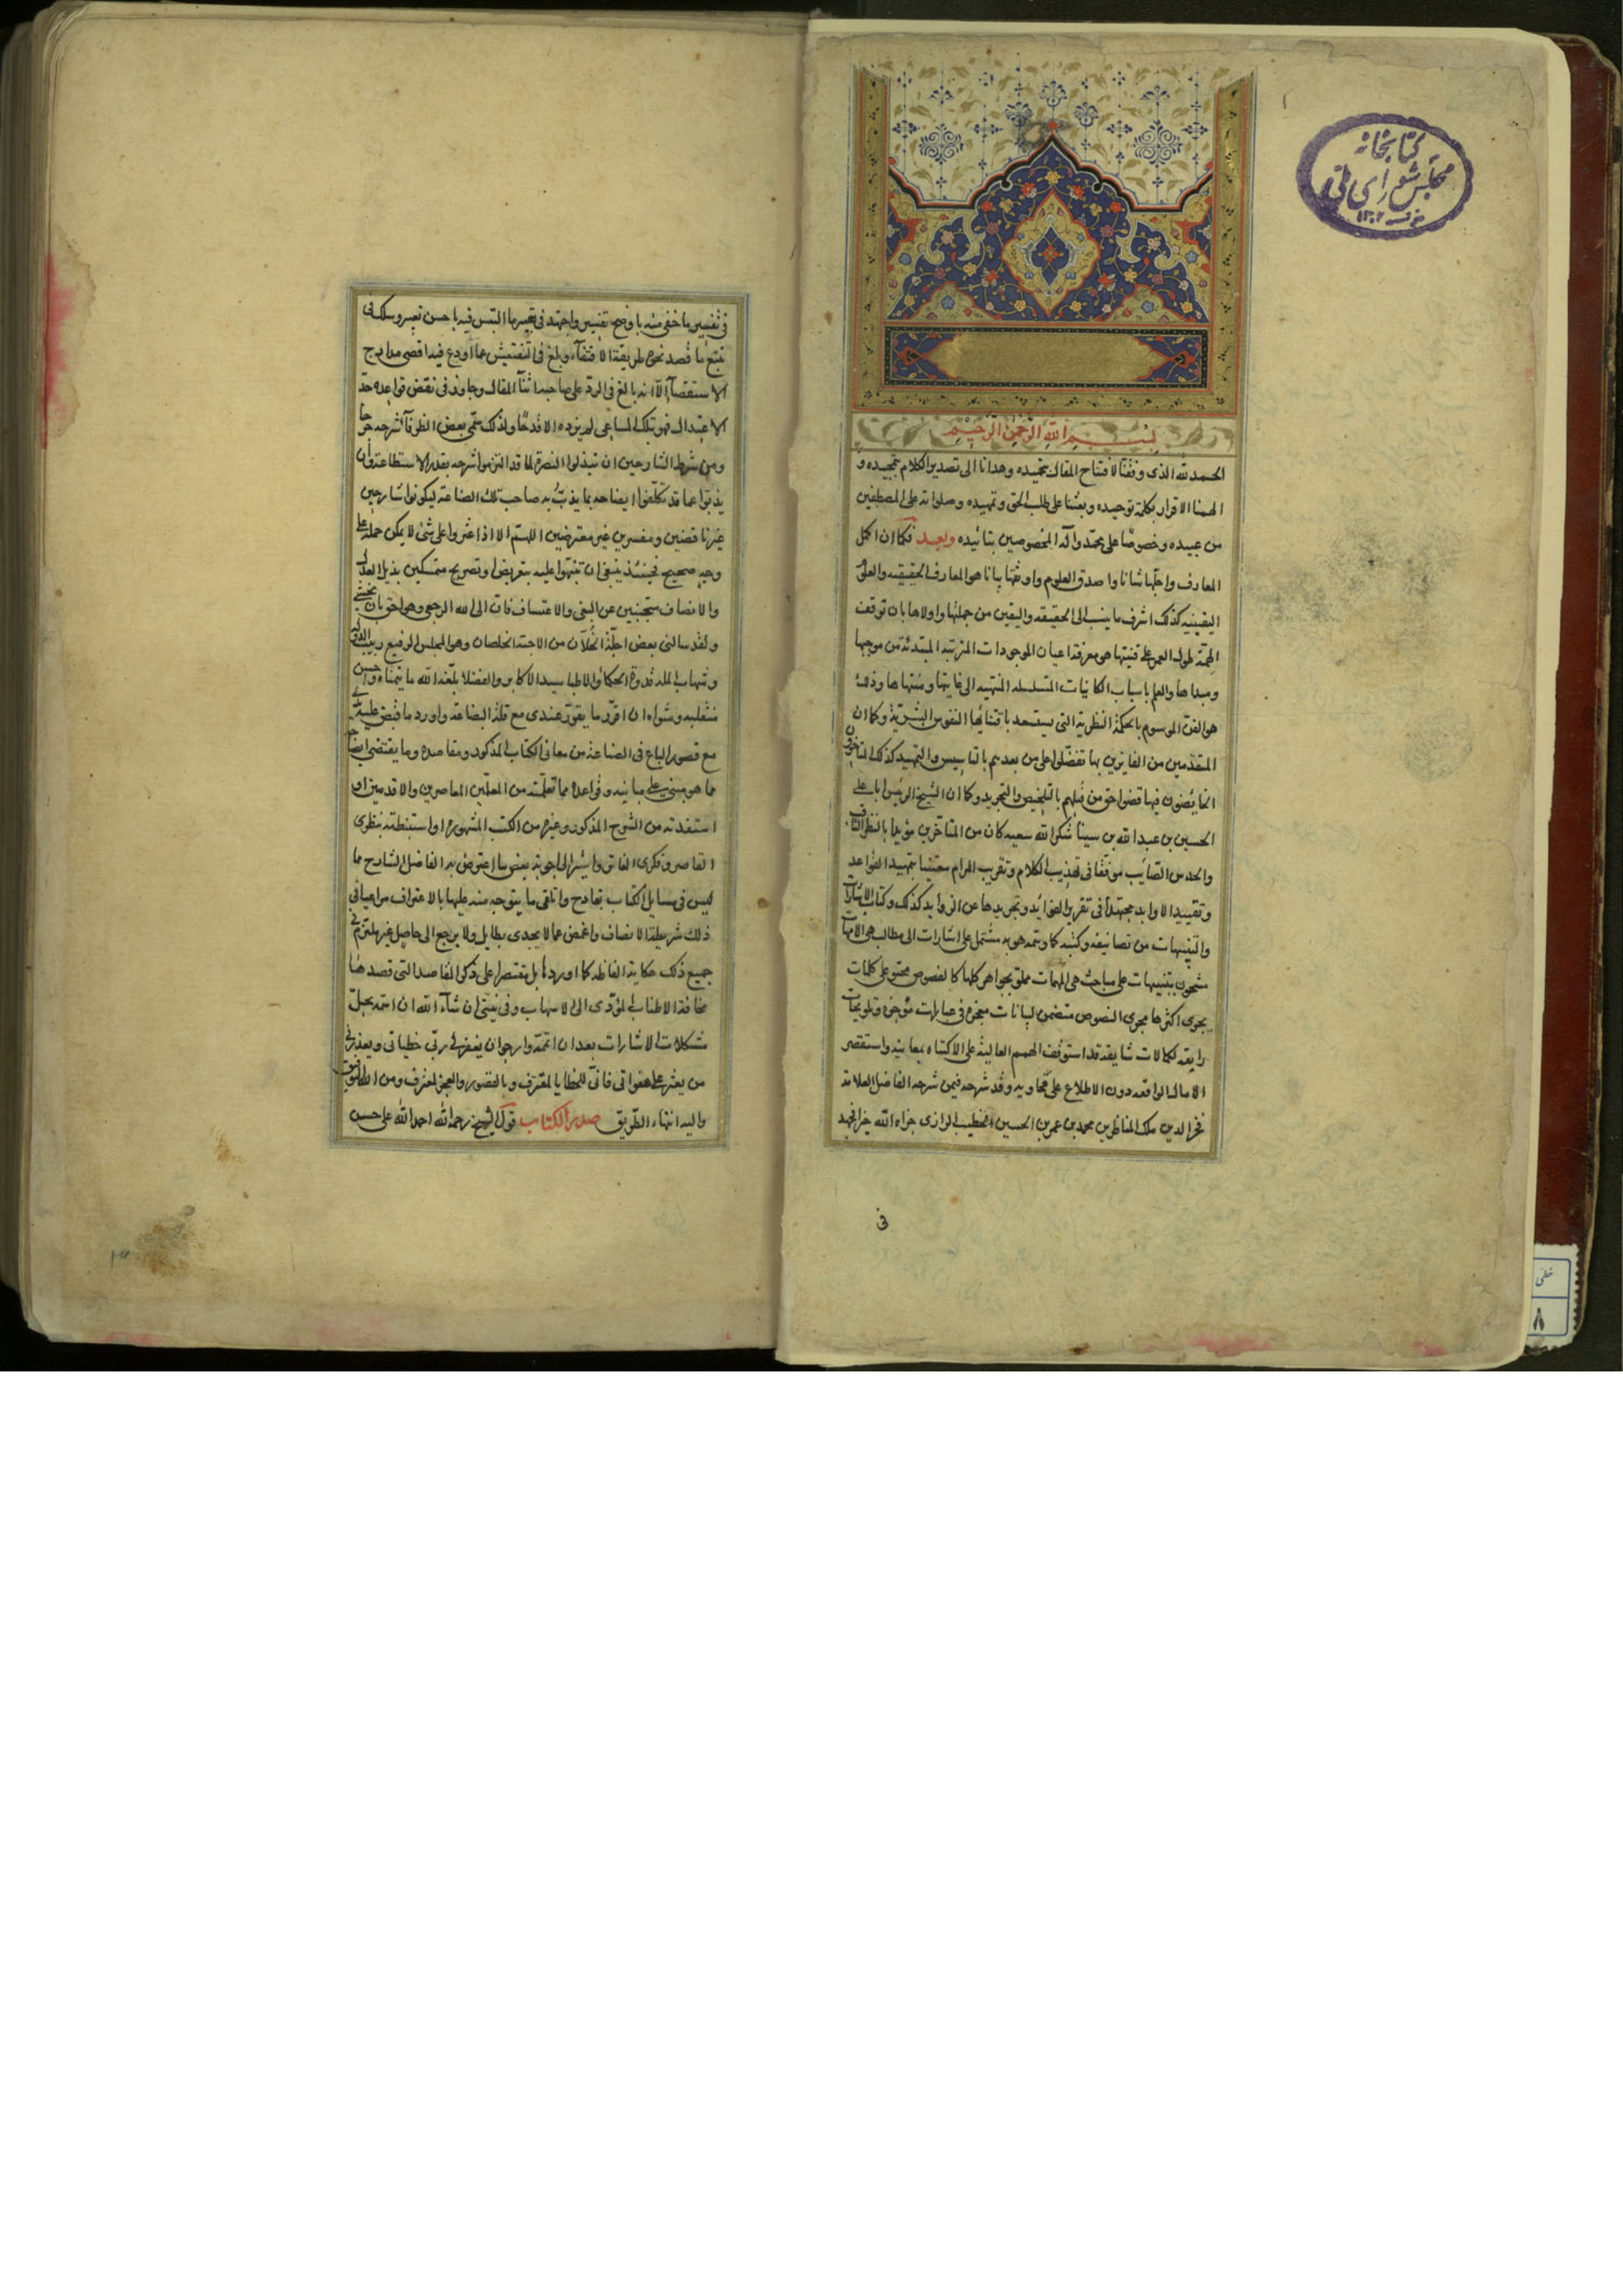 كتابخانه
مجلس شورای ملی
١٣٠٢
بسم الله الرحمن الرحيم
الحمد لله الذى وفقنا لافتتاح المقال بتحميده وهدانا الى تصدير الكلام بتمجيده و
الهمنا الاقرار بكلمة توحيده وبعثنا على طلب الحق وتمهيده وصلواته على المصطفين
من عبيده وخصوصًا على محمد وآله المخصوصين بتائيده وبعد فكما ان اكمل
المعارف واجلها شانا واصدق العلوم واوثقها بيانا هو المعارف الحقيقيه والعلوم
اليقينيه كذلك اشرف ما ينسب الى الحقيقه واليقين من جملتها واولاها بان توقف
الهمة طول العمر على قنيتها هو معرفة اعيان الموجودات المترتبه المبتدئة من موجبها
ومبداها والعلم باسباب الكاينات المتسلسله المنتهيه الى غايتها ومنتهاها وذلك
هو الفن الموسوم بالحكمة النظرية التى يستعد باقتنائها النفوس البشرية وكما ان
المتقدمين من الفايزين بها تفضلوا على من بعدهم بالتاسيس والتمهيد كذلك المتاخرون
الخايضون فيها قضوا حق من قبلهم بالتلخيص والتجريد وكما ان الشيخ الرئيس ابا على
الحسين بن عبد الله بن سينا شكر الله سعيه كان من المتاخرين مؤيدا بالنظر الثاقب
والحدس الصايب موفقا فى تهذيب الكلام وتقريب المرام معتنيا بتمهيد القواعد
وتقييد الاوابد مجتهدا فى تقرير الفوائد وتجريدها عن الزوايد كذلك وكتاب الاشارات
والتنبيهات من تصانيفه وكتبه كما وسمه هو به مشتمل على اشارات الى مطالب هى الامهات
مشحون بتنبيهات على مباحث هى المهمات مملو بجواهر كلها كالفصوص محتو على كلمات
يجرى اكثرها مجرى النصوص متضمن لبيانات معجزه فى عبارات موجزه وتلويحات
رايقه لكمالات شايقه قد استوقف الهمم العالية على الاكتناه بمعانيه واستقصر
الامال الوافيه دون الاطلاع على فحاويه وقد شرحه فيمن شرحه الفاضل العلامة
فخر الدين ملك المناظرين محمد بن عمر بن الحسين الخطيب الرازى جزاه الله خيرا فجهد
فى
فى تفسير ما خفى منه باوضح تفسير واجتهد فى تعبير ما التبس فيه باحسن تعبير وسلك فى
تتبع ما قصد نحوه طريقة الاقتفاء وبلغ فى التفتيش عما اودع فيه اقصى مدارج
الاستقصآء الا انه بالغ فى الرد على صاحبه اثنآ المقال وجاوز فى نقض قواعده حد
الاعتدال فهو بتلك المساعى لم يزده الا قدحًا ولذلك سمى بعض الظرفآ شرحه جرحا
ومن شرط الشارحين ان تبذلوا النصرة لما قد التزموا شرحه بقدر الاستطاعة وان
يذبوا عما قد تكلفوا ايضاحه بما يذب به صاحب تلك الصناعة ليكونوا شارحين
غير ناقضين ومفسرين غير معترضين اللهم الا اذا عثروا على شئ لا يمكن حمله على
وجه صحيح فحينئذ ينبغى ان تنبهوا عليه بتعريض او تصريح متمسكين بذيل العدل
والانصاف متجنبين عن البغى والاعتساف فان الى الله الرجعى وهو احق بان يخشى
ولقد سالنى بعض اجلة الخلان من الاحبة الخلصان وهو المجلس الرفيع ربيب الدولة
وشهاب الملة قدوة الحكماء والاطبا سيد الاكابر والفضلا بلغه الله ما يتمناه واحسن
منقلبه ومثواه ان اقرر ما يقرر عندى مع قلة البضاعة واورد ما قبض عليه يدى
مع قصور الباع فى الصناعة من معانى الكتاب المذكور ومقاصده وما يقتضى ايضاحه
مما هو مبنى على مبانيه وقواعده مما تعلمته من المعلمين المعاصرين والاقدمين او
استفدته من الشرح المذكور وغيره من الكتب المشهورة او استنبطته بنظرى
القاصر وفكرى الفاتر واشير الى اجوبة بعض ما اعترض به الفاضل الشارح مما
ليس فى مسايل الكتاب بقادح واتلقى ما يتوجه منه عليها بالاعتراف مراعيا فى
ذلك شريطة الانصاف واغمض عما لا يجدى بطايل ولا يرجع الى حاصل غير ملتزم فى
جميع ذلك حكاية الفاظه كما اوردها بل مقتصرا على ذكر المقاصد التى قصدها
مخافة الاطناب المؤدى الى الاسهاب وفى نيتى ان شآء الله ان اسمه بحل
مشكلات الاشارات بعد ان اتممه وارجو ان يغفر لى ربى خطياتى ويعذرنى
من يعثر على هفواتى فانى للخطايا لمقترف وبالقصور والعجز لمعترف ومن الله التوفيق
واليه انتهاء الطريق صدر الكتاب قول الشيخ رحمه الله احمد الله على حسن
خطى
٨